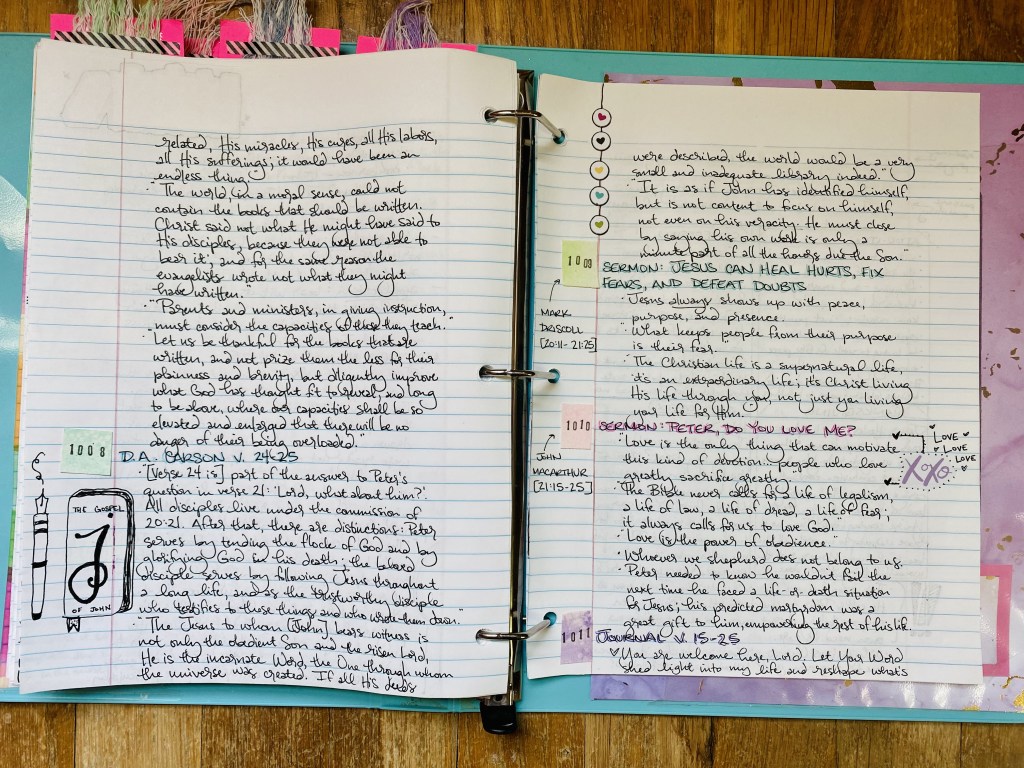 related, His miracles, His cures, all His labors,
all His sufferings; it would have been an
endless thing."
·"The world, in a moral sense, could not
contain the books that should be written.
Christ said not what He might have said to
His disciples, because they 'were not able to
bear it', and for the same reason the
evangelists wrote not what they might
have written."
·"Parents and ministers, in giving instruction,
must consider the capacities of those they teach."
·"Let us be thankful for the books that are
written, and not prize them the less for their
plainness and brevity, but diligently improve
what God has thought fit to reveal, and long
to be above, where our capacities shall be so
elevated and enlarged that there will be no
danger of their being overloaded."
1008
D.A. CARSON V. 24-25
·"[Verse 24 is] part of the answer to Peter's
question in verse 21: 'Lord, what about him?'.
All disciples live under the commission of
20:21. After that, there are distinctions: Peter
serves by tending the flock of God and by
glorifying God in his death; the beloved
disciple serves by following Jesus throughout
a long life, and as the trustworthy disciple
who testifies to those things and who wrote them down."
·"The Jesus to whom [John] bears witness is
not only the obedient Son and the risen Lord,
He is the incarnate Word, the One through whom
the universe was created. If all His deeds
THE GOSPEL
J
OF JOHN
were described, the world would be a very
small and inadequate library indeed."
·"It is as if John has identified himself,
but is not content to focus on himself,
not even on his veracity. He must close
by saying his own work is only a
minute part of all the honors due the Son."
1009
SERMON: JESUS CAN HEAL HURTS, FIX
FEARS, AND DEFEAT DOUBTS
MARK
DRISCOLL
[20:11-21:25]
·Jesus always shows up with peace,
purpose, and presence.
·"What keeps people from their purpose
is their fear.
·"The Christian life is a supernatural life,
it's an extraordinary life; it's Christ living
His life through you, not just you living
your life for Him.
1010
SERMON: PETER, DO YOU LOVE ME?
JOHN
MACARTHUR
[21:15-25]
·"Love is the only thing that can motivate
this kind of devotion... people who love
greatly sacrifice greatly.
·"The Bible never calls for a life of legalism,
a life of law, a life of dread, a life of fear;
it always calls for us to love God."
·"Love (is) the power of obedience."
·Whoever we shepherd does not belong to us.
·Peter needed to know he wouldn't fail the
next time he faced a life-or-death situation
for Jesus; his predicted martyrdom was a
great gift to him, empowering the rest of his life.
LOVE
LOVE
LOVE
XOXO
1011
JOURNAL V. 15-25
♡You are welcome here, Lord. Let Your Word
shed light into my life and reshape what's